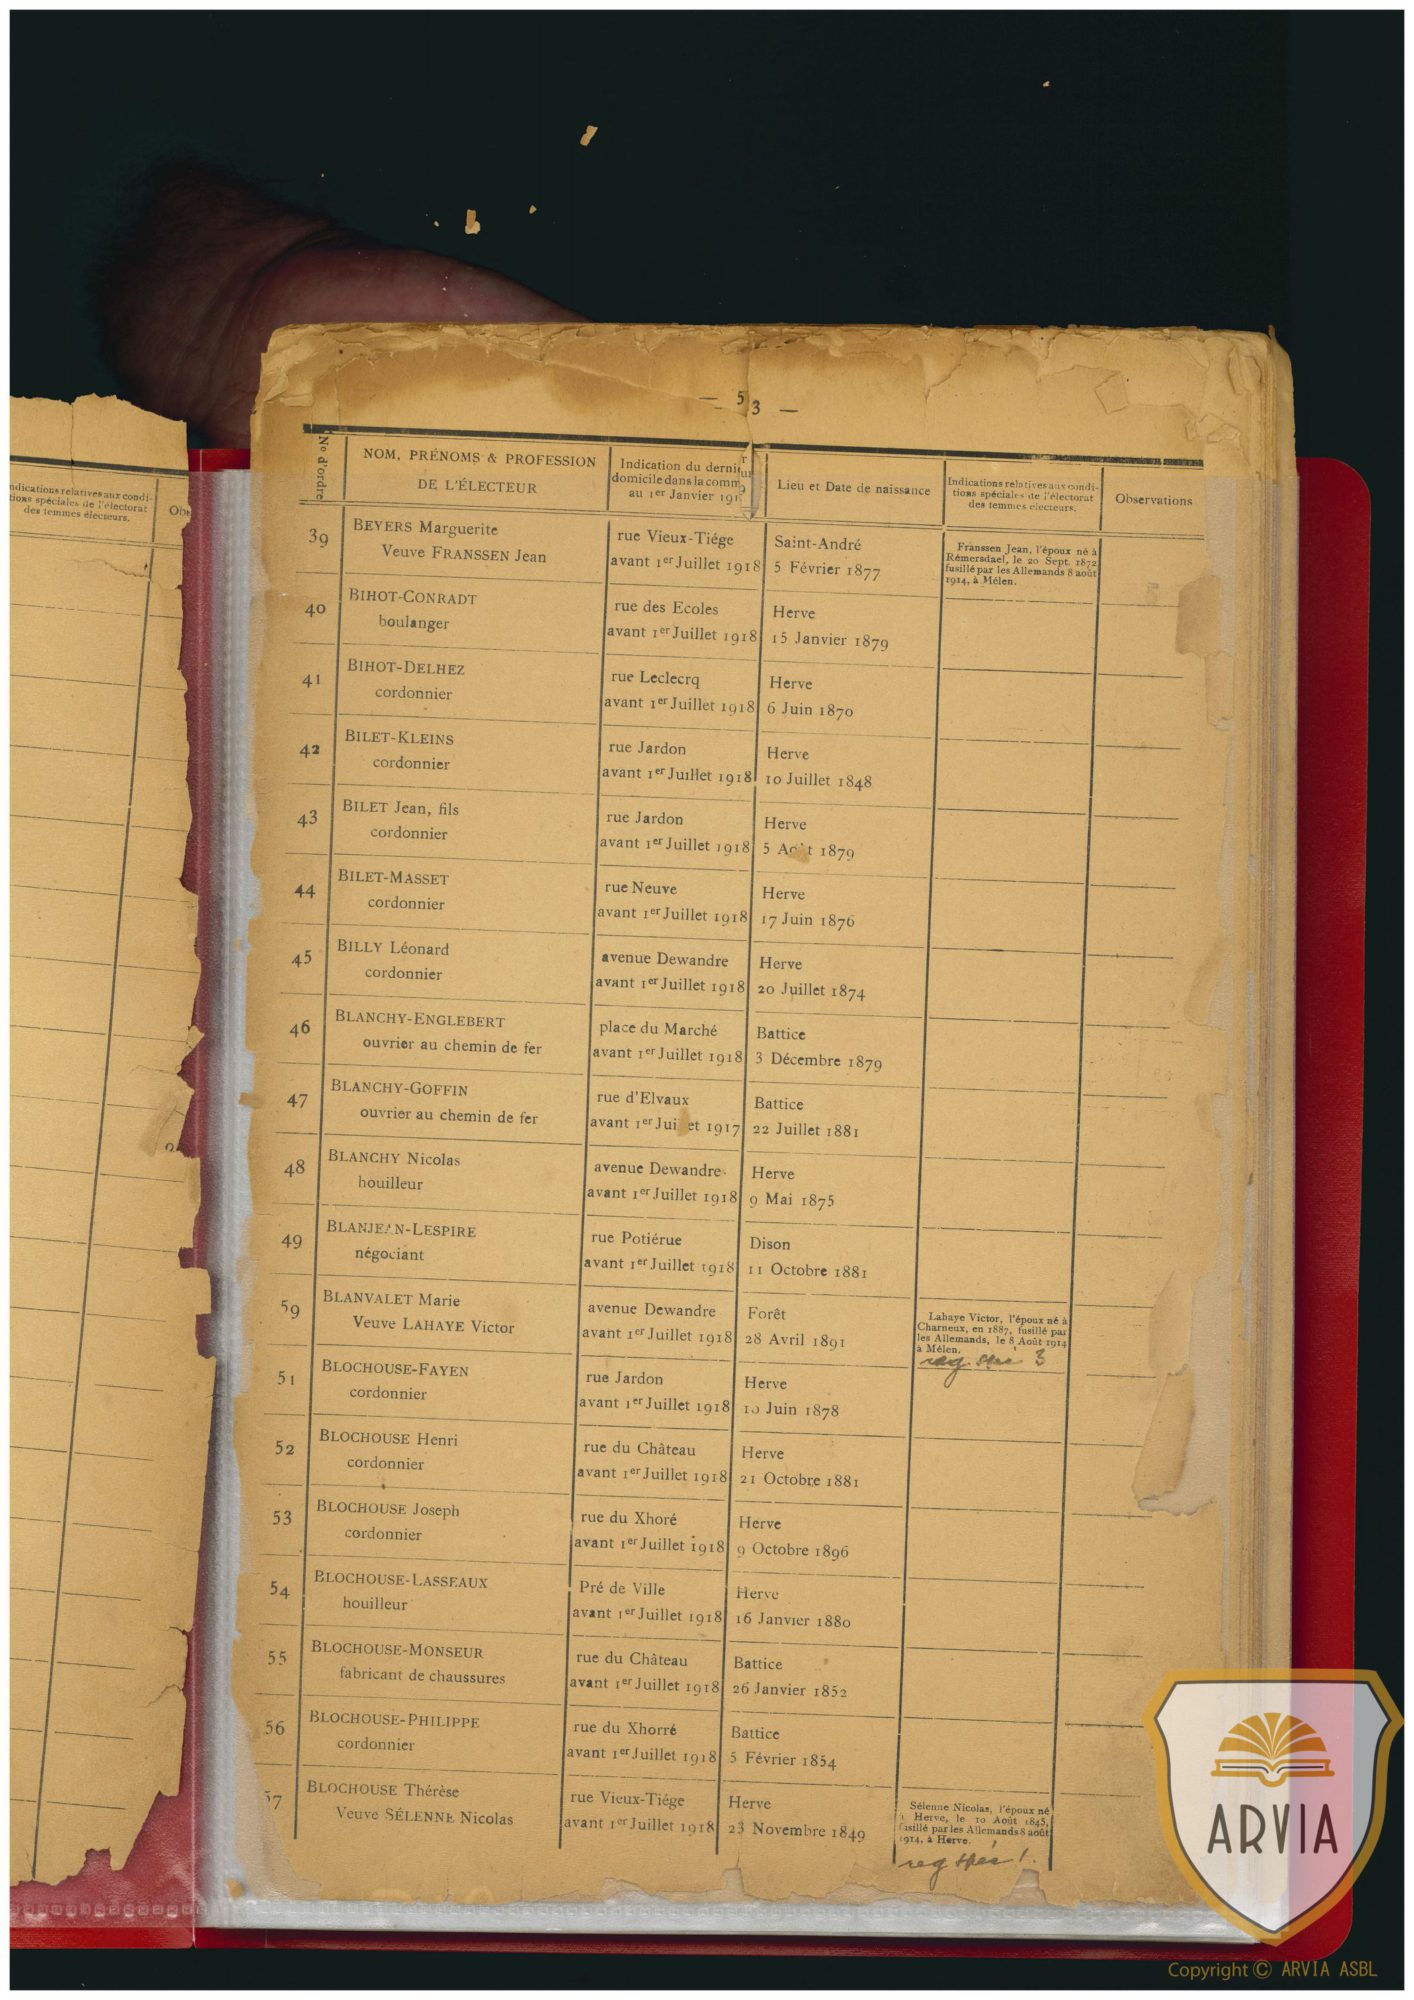 ndications relatives aux condi-
tions spéciales de l'électorat
des femmes électeurs.
Obs
— 53 —
N° d'ordre
NOM, PRÉNOMS & PROFESSION
DE L'ÉLECTEUR
Indication du dernier
domicile dans la comm
au 1er Janvier 191
Lieu et Date de naissance
Indications relatives aux condi-
tions spéciales de l'électorat
des femmes électeurs.
Observations
39 BEYERS Marguerite rue Vieux-Tiége Saint-André
Veuve FRANSSEN Jean avant 1er Juillet 1918 5 Février 1877
Franssen Jean, l'époux né à
Rémersdael, le 20 Sept. 1872
fusillé par les Allemands 8 août
1914, à Mélen.
40 BIHOT-CONRADT rue des Ecoles Herve
boulanger avant 1er Juillet 1918 15 Janvier 1879
41 BIHOT-DELHEZ rue Leclecrq Herve
cordonnier avant 1er Juillet 1918 6 Juin 1870
42 BILET-KLEINS rue Jardon Herve
cordonnier avant 1er Juillet 1918 10 Juillet 1848
43 BILET Jean, fils rue Jardon Herve
cordonnier avant 1er Juillet 1918 5 Août 1879
44 BILET-MASSET rue Neuve Herve
cordonnier avant 1er Juillet 1918 17 Juin 1876
45 BILLY Léonard avenue Dewandre Herve
cordonnier avant 1er Juillet 1918 20 Juillet 1874
46 BLANCHY-ENGLEBERT place du Marché Battice
ouvrier au chemin de fer avant 1er Juillet 1918 3 Décembre 1879
47 BLANCHY-GOFFIN rue d'Elvaux Battice
ouvrier au chemin de fer avant 1er Juillet 1917 22 Juillet 1881
48 BLANCHY Nicolas avenue Dewandre Herve
houilleur avant 1er Juillet 1918 9 Mai 1875
49 BLANJEAN-LESPIRE rue Potiérue Dison
négociant avant 1er Juillet 1918 11 Octobre 1881
59 BLANVALET Marie avenue Dewandre Forêt
Veuve LAHAYE Victor avant 1er Juillet 1918 28 Avril 1891
Lahaye Victor, l'époux né à
Charneux, en 1887, fusillé par
les Allemands, le 8 Août 1914
à Mélen.
reg. spéc 3
51 BLOCHOUSE-FAYEN rue Jardon Herve
cordonnier avant 1er Juillet 1918 10 Juin 1878
52 BLOCHOUSE Henri rue du Château Herve
cordonnier avant 1er Juillet 1918 21 Octobre 1881
53 BLOCHOUSE Joseph rue du Xhoré Herve
cordonnier avant 1er Juillet 1918 9 Octobre 1896
54 BLOCHOUSE-LASSEAUX Pré de Ville Herve
houilleur avant 1er Juillet 1918 16 Janvier 1880
55 BLOCHOUSE-MONSEUR rue du Château Battice
fabricant de chaussures avant 1er Juillet 1918 26 Janvier 1852
56 BLOCHOUSE-PHILIPPE rue du Xhorré Battice
cordonnier avant 1er Juillet 1918 5 Février 1854
57 BLOCHOUSE Thérèse rue Vieux-Tiége Herve
Veuve SÉLENNE Nicolas avant 1er Juillet 1918 23 Novembre 1849
Sélenne Nicolas, l'époux né
à Herve, le 10 Août 1845,
fusillé par les Allemands 8 août
1914, à Herve.
reg spéc 1.
ARVIA
Copyright © ARVIA ASBL